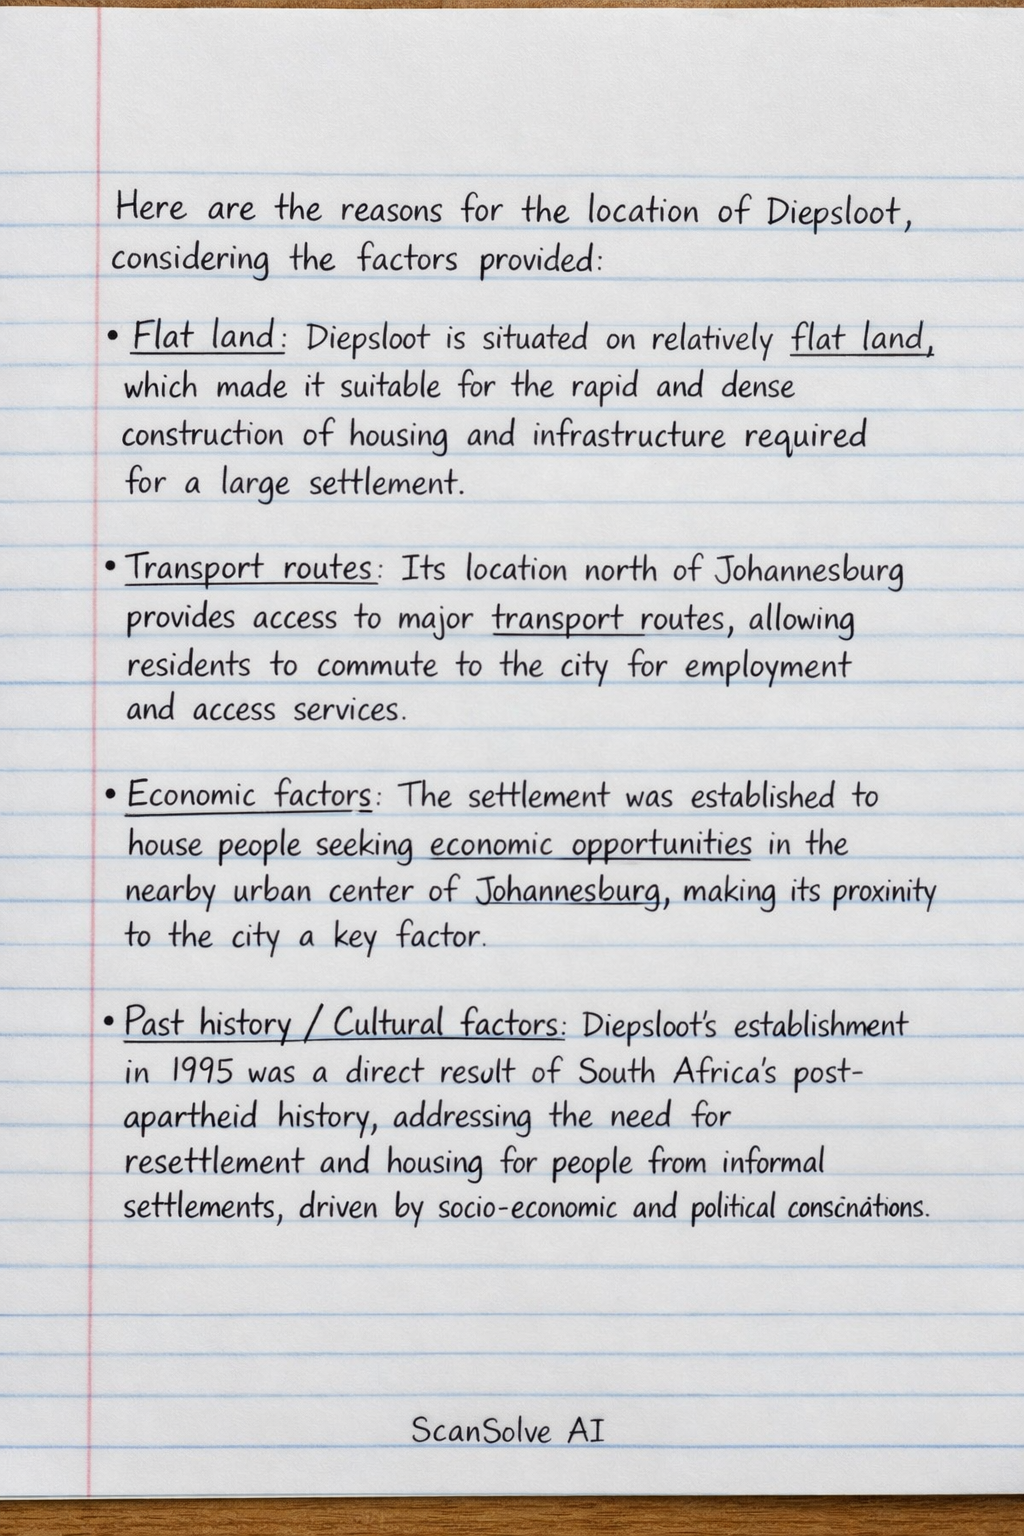 Here are the reasons for the location of Diepsloot,
considering the factors provided:
• Flat land: Diepsloot is situated on relatively flat land,
which made it suitable for the rapid and dense
construction of housing and infrastructure required
for a large settlement.
• Transport routes: Its location north of Johannesburg
provides access to major transport routes, allowing
residents to commute to the city for employment
and access services.
• Economic factors: The settlement was established to
house people seeking economic opportunities in the
nearby urban center of Johannesburg, making its proxinity
to the city a key factor.
• Past history / Cultural factors: Diepsloot's establishment
in 1995 was a direct result of South Africa's post-
apartheid history, addressing the need for
resettlement and housing for people from informal
settlements, driven by socio-economic and political
ScanSolve AI